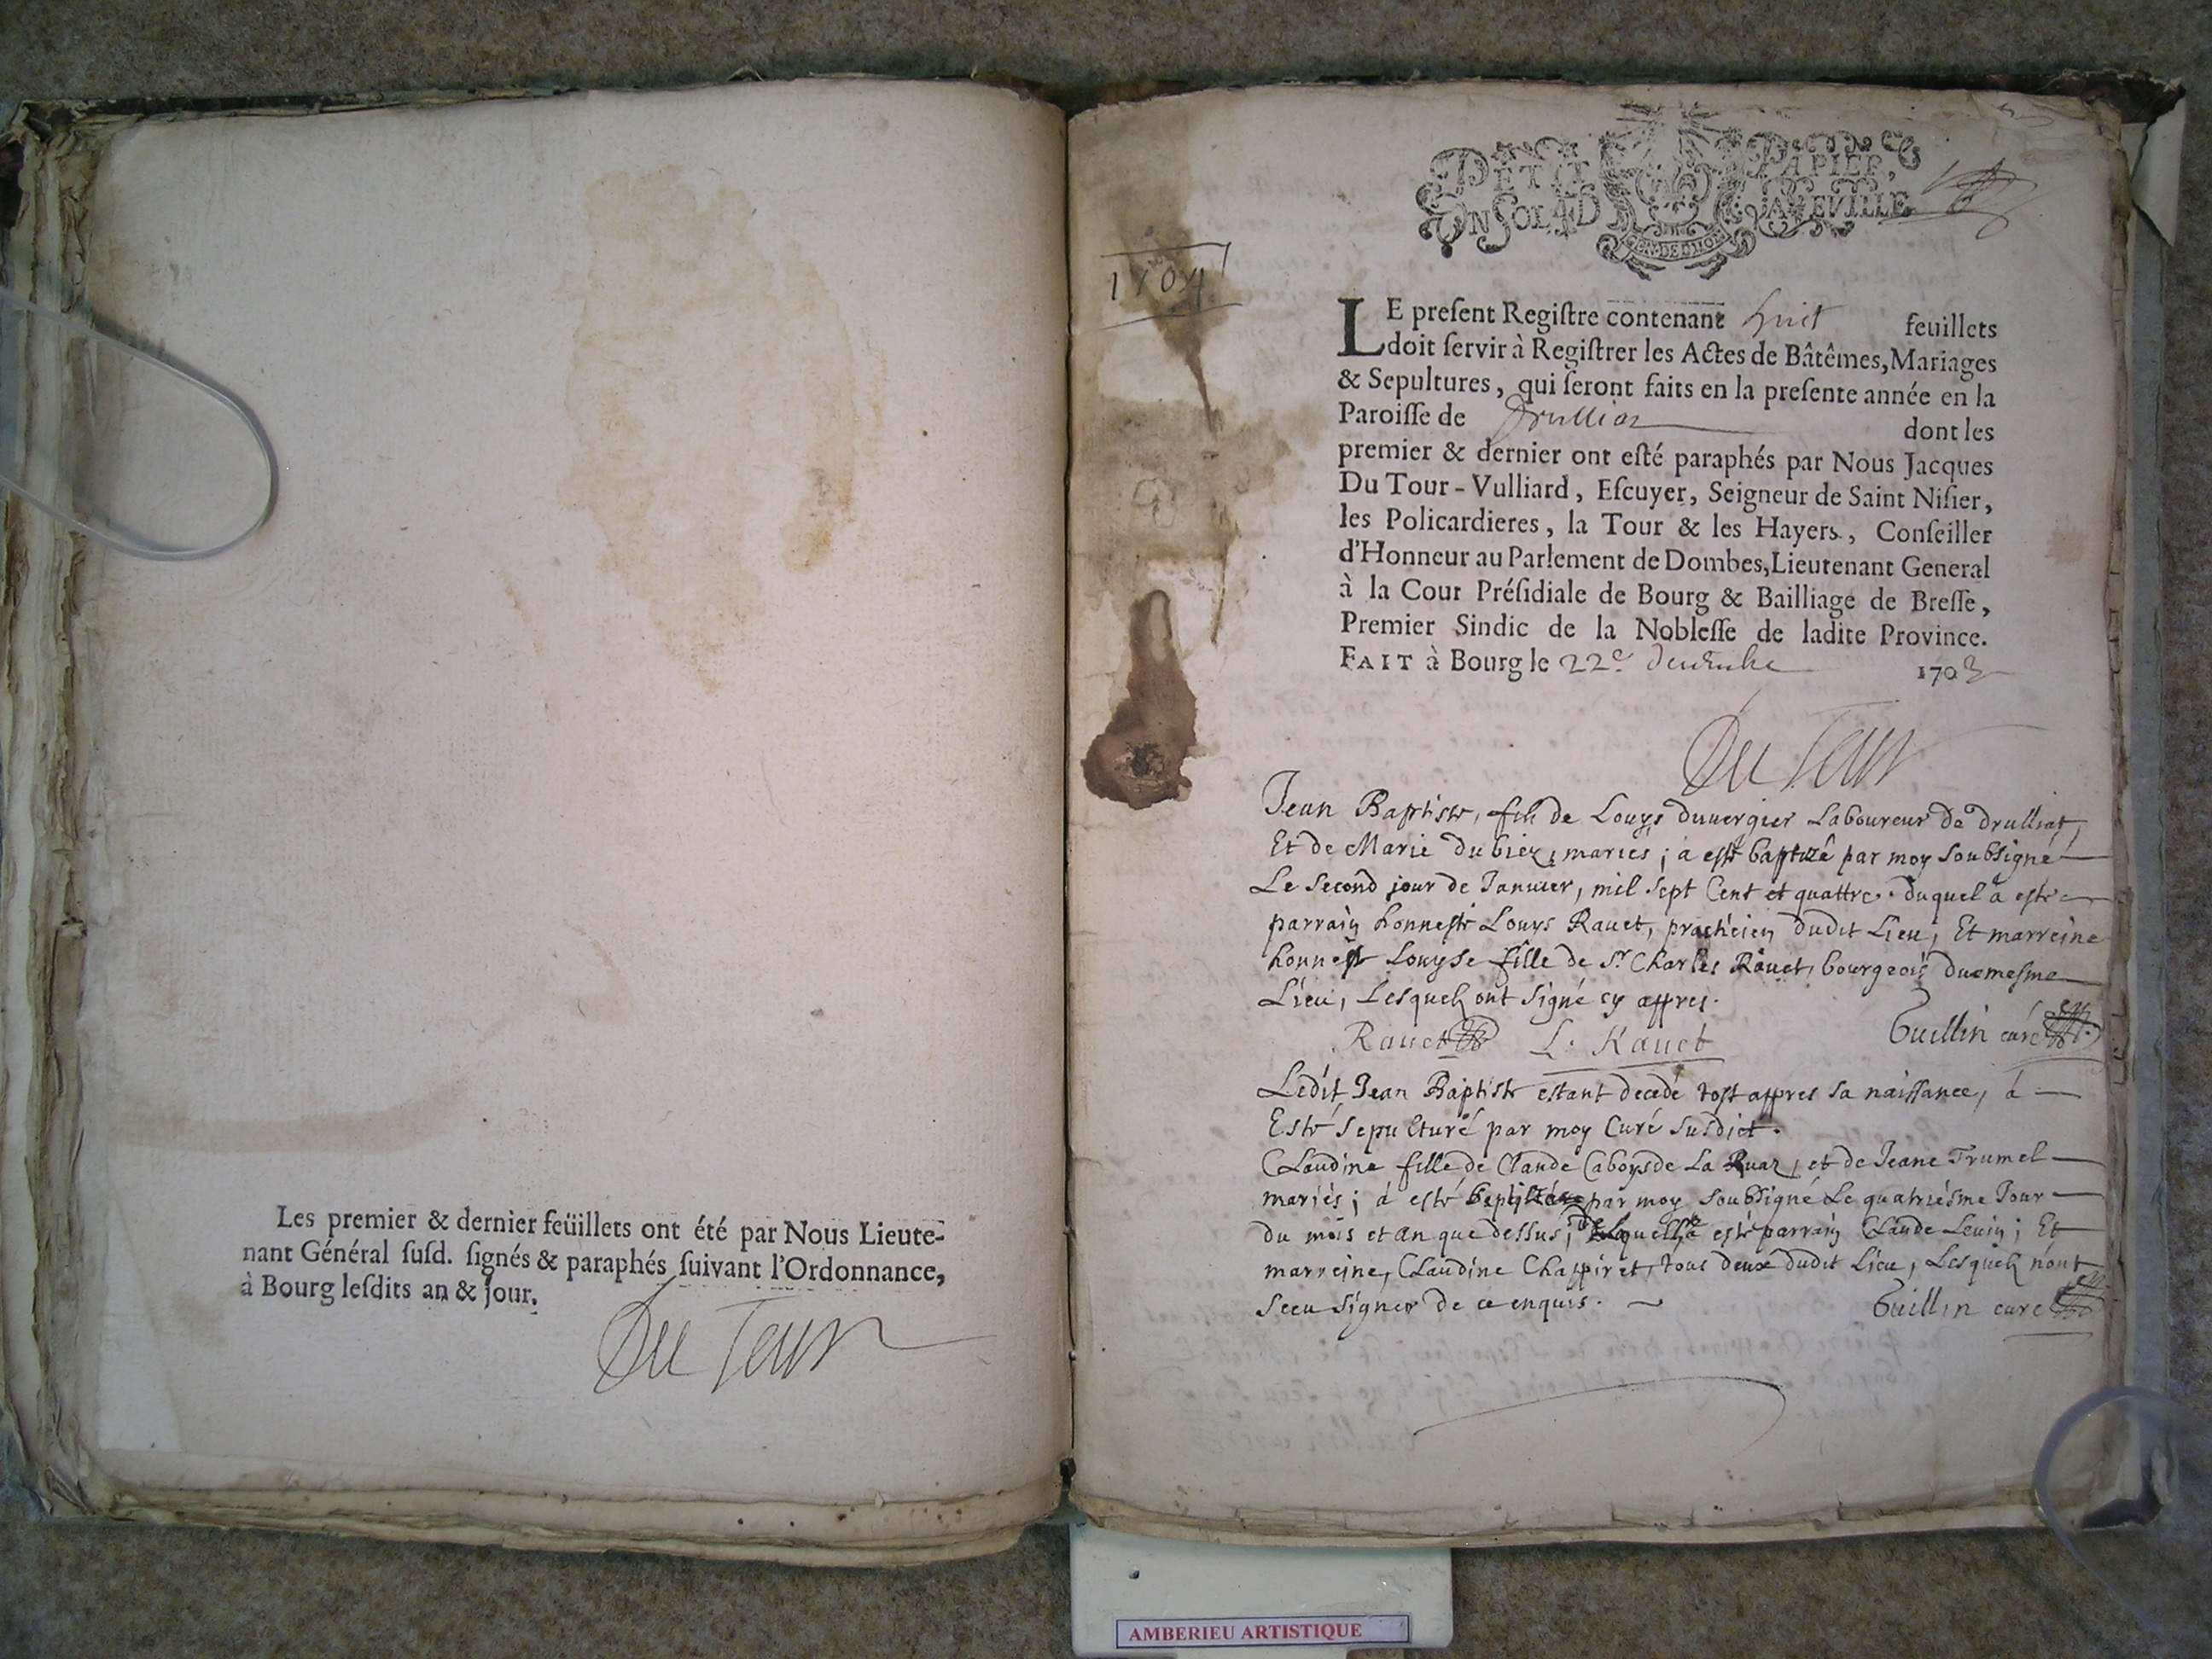 Les premier & dernier feüillets ont été par Nous Lieute-
nant Général ſuſd. ſignés & paraphés ſuivant l'Ordonnance,
à Bourg leſdits an & jour.
Du Tour
PETIT PAPIER,
UN SOL 4 D LA FEVILLE
GEN. DE DIJON
1704
LE preſent Regiſtre contenant huit feuillets
doit ſervir à Regiſtrer les Actes de Bâtêmes, Mariages
& Sepultures, qui ſeront faits en la preſente année en la
Paroiſſe de Drulliat dont les
premier & dernier ont eſté paraphés par Nous Jacques
Du Tour-Vulliard, Eſcuyer, Seigneur de Saint Niſier,
les Policardieres, la Tour & les Hayers, Conſeiller
d'Honneur au Parlement de Dombes, Lieutenant General
à la Cour Préſidiale de Bourg & Bailliage de Breſſe,
Premier Sindic de la Nobleſſe de ladite Province.
FAIT à Bourg le 22e decembre 1703
Du Tour
Jean Baptiste, fils de Louys duuergier Laboureur de drulliat,
Et de Marie du biez, mariés; a esté baptizé par moy soubsigné
Le second jour de Januier, mil sept Cent et quattre. duquel a esté
parrain honneste Louys Rauet, prachicien dudit Lieu, Et marreine
honneste Louyse fille de Sr Charles Rauet, bourgeois du mesme
Lieu, Lesquels ont signé cy appres.
Rauet L. Rauet Guillin curé
Ledit Jean Baptiste estant decedé tost appres sa naissance, a
Esté sepulturé par moy Curé susdict.
Claudine fille de Claude Caboys de La Ruaz, et de Jeane Trumel
mariés; a esté par moy soubsigné Le quatriésme Jour
du mois et an que dessus, de Laquelle a esté parrain Claude Leuin; Et
marreine, Claudine Chappiret, tous deux dudit Lieu, Lesquels n'ont
sceu signer de ce enquis. Guillin curé
AMBERIEU ARTISTIQUE